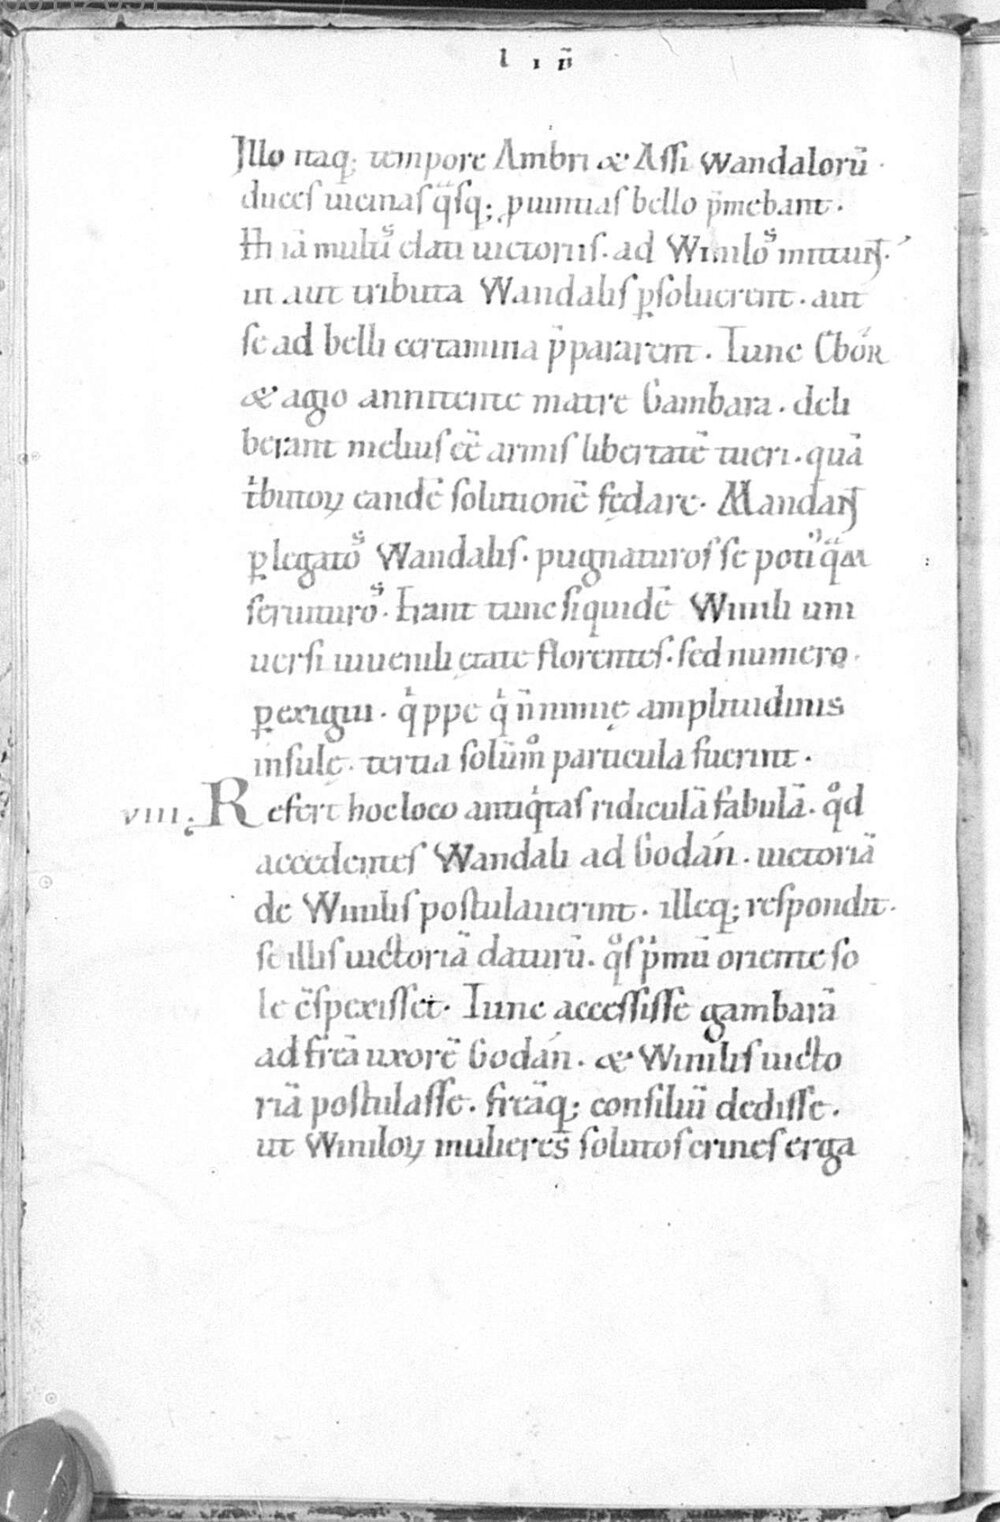 L I B̃
Illo itaq; tempore Ambri & Assi Wandalorũ
duces uicinas q̃sq; ꝓuintias bello p̃mebant.
Hi iã multũs elati uictoriis. ad Winiloˢ mittunt.
ut aut tributa Wandalis ꝑsoluerent. aut
se ad belli certamina p̃pararent. Tunc Ebor
& agio annitente matre Gambara. deli
berant melius eẽ armis libertatẽ tueri. quã
tͥbutoꝝ eandẽ solutionẽ fędare. Mandant
ꝑ legatoˢ Wandalis. pugnaturos se poti᾽ q̃m
seruituroˢ. Erant tunc siquidẽ Winili uni
uersi iuuenili ętate florentes. sed numero
ꝑexigui. qͥppe qͥ ñ nimię amplitudinis
insulę. tertia solũmͦ particula fuerint.
VIII. Refert hoc loco antiqͥtas ridiculã fabulã. qͦd
accedentes Wandali ad Godán. uictoriã
de Winilis postulauerint. illeq; respondit.
se illis uictoriã daturũ. qͦs pͥmũ oriente so
le c̃spexisset. Tunc accessisse gambarã
ad freã uxorẽ Godán. & Winilis uicto
riã postulasse. freãq; consiliũ dedisse.
ut Winiloꝝ mulieres̃ solutos crines erga